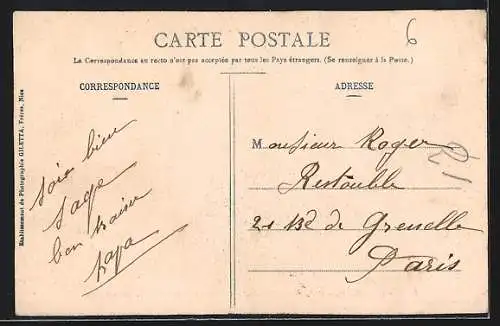 6
CARTE POSTALE
La Correspondance au recto n'est pas acceptée par tous les Pays étrangers. (Se renseigner à la Poste.)
CORRESPONDANCE
ADRESSE
Etablissement de Photographie GILETTA, Frères, Nice
sois bien
sage
bon baiser
papa
Monsieur Roger
Restouble
21 Bd de Grenelle
Paris